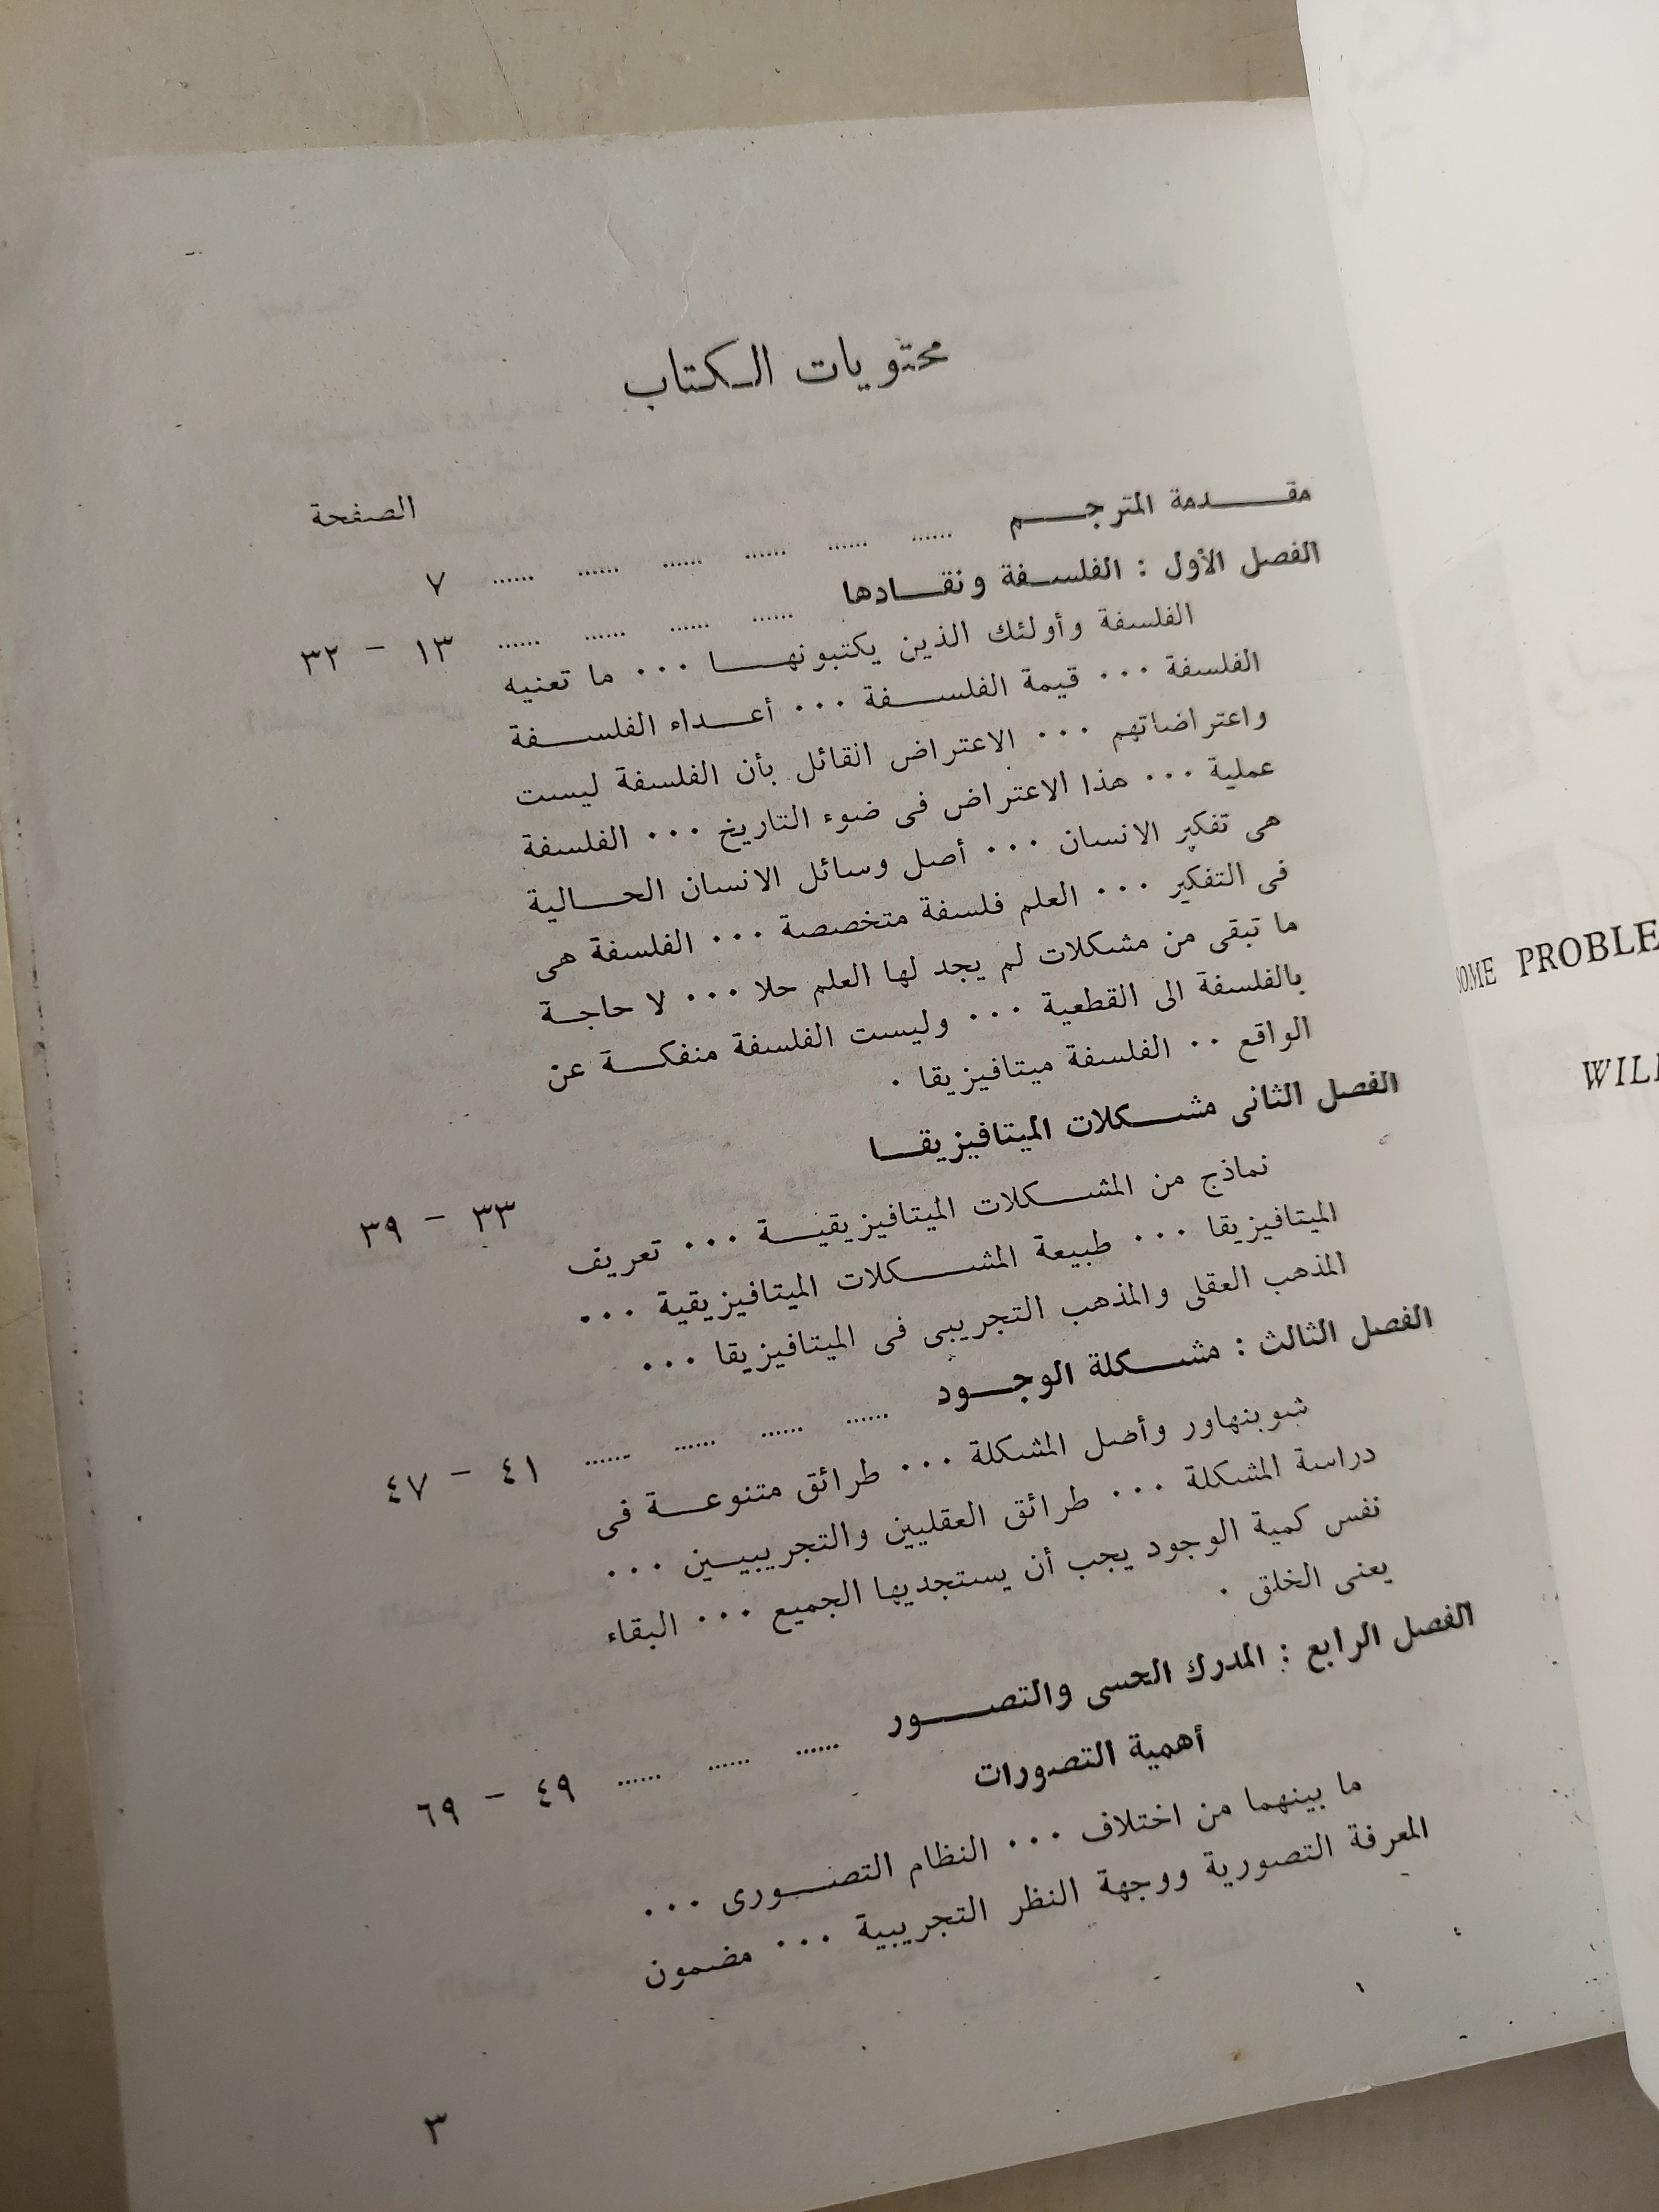 محتويات الكتاب
الصفحة
مقدمة المترجم ...... ...... ...... ...... ...... ...... ٧
الفصل الأول : الفلسفة ونقادها ...... ...... ...... ...... ١٣ – ٣٢
الفلسفة وأولئك الذين يكتبونها ... ما تعنيه
الفلسفة ... قيمة الفلسفة ... أعداء الفلسفة
واعتراضاتهم ... الاعتراض القائل بأن الفلسفة ليست
عملية ... هذا الاعتراض فى ضوء التاريخ ... الفلسفة
هى تفكير الانسان ... أصل وسائل الانسان الحالية
فى التفكير ... العلم فلسفة متخصصة ... الفلسفة هى
ما تبقى من مشكلات لم يجد لها العلم حلا ... لا حاجة
بالفلسفة الى القطعية ... وليست الفلسفة منفكة عن
الواقع .. الفلسفة ميتافيزيقا .
الفصل الثانى مشكلات الميتافيزيقا ٣٣ – ٣٩
نماذج من المشكلات الميتافيزيقية ... تعريف
الميتافيزيقا ... طبيعة المشكلات الميتافيزيقية ...
المذهب العقلى والمذهب التجريبى فى الميتافيزيقا ...
الفصل الثالث : مشكلة الوجود ...... ...... ...... ...... ٤١ – ٤٧
شوبنهاور وأصل المشكلة ... طرائق متنوعة فى
دراسة المشكلة ... طرائق العقليين والتجريبيين ...
نفس كمية الوجود يجب أن يستجديها الجميع ... البقاء
يعنى الخلق .
الفصل الرابع : المدرك الحسى والتصور ...... ...... ...... ٤٩ – ٦٩
أهمية التصورات
ما بينهما من اختلاف ... النظام التصورى ...
المعرفة التصورية ووجهة النظر التجريبية ... مضمون
٣
SOME PROBLE
WILL